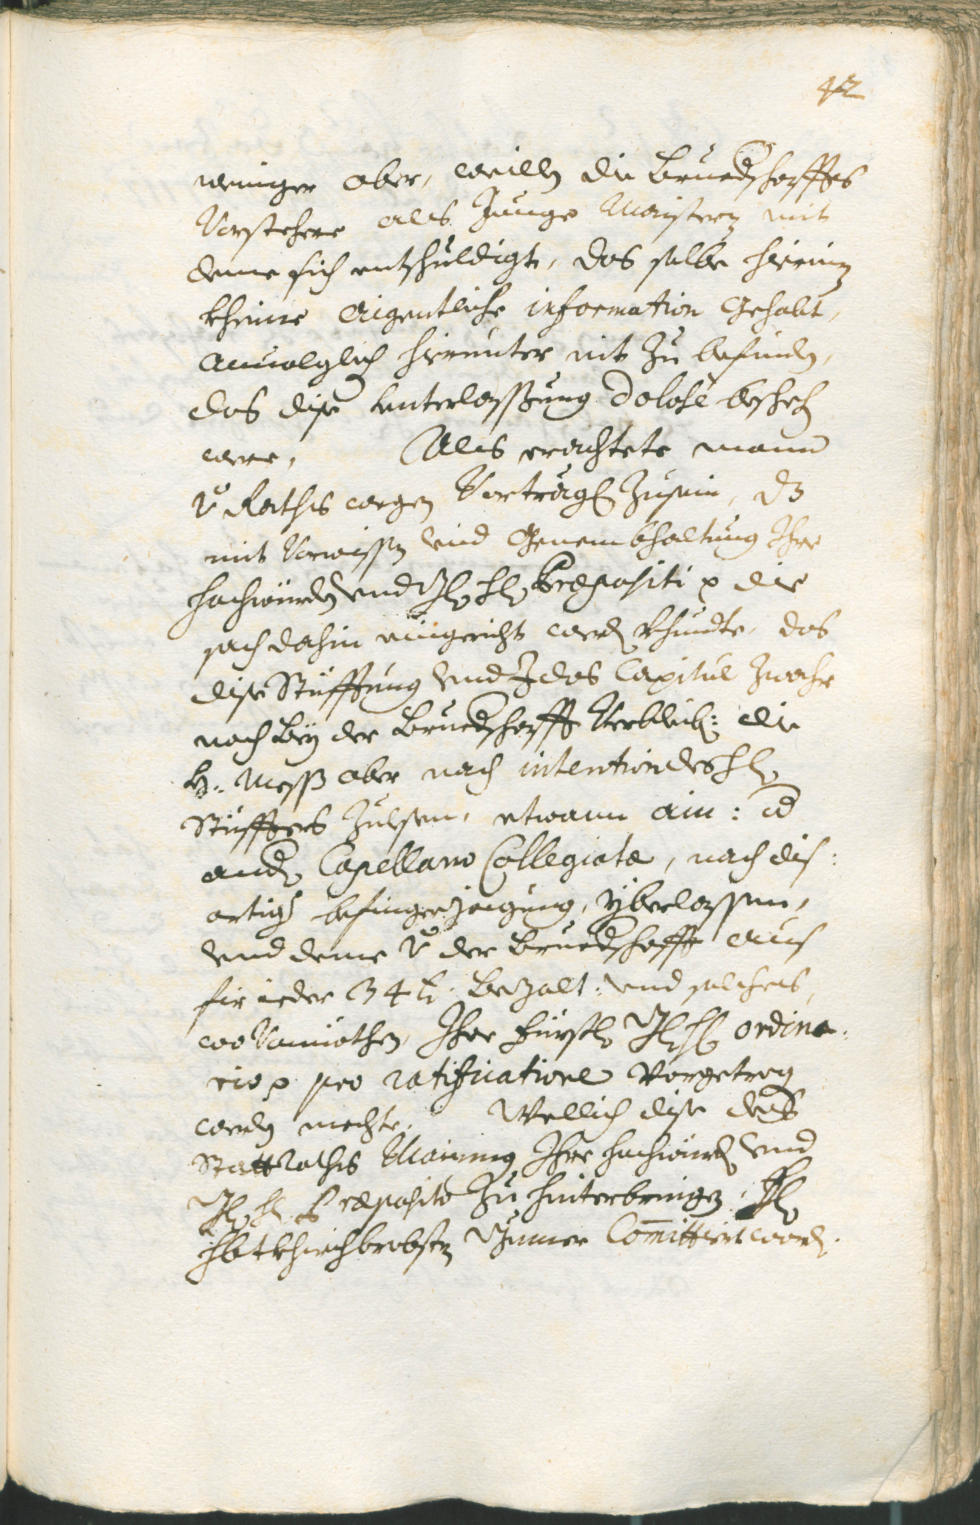 42
weniger aber, weillen die Bruedschafffts
Vorstehere als Junge Maistern mit
deme sich entschuldigt, das selbe hierinn
kheine aigentliche information gehabt,
hierunter nit zu befinden,
das dise unterlassung dolose beschehen
were, Als erachtete mann
v̊ Raths wegen Vorträgl. zusein, dz
mit Vorwissen und genembhaltung Ihre
hochwürden und Præpositi p die
sach dahin eingericht werden khundte, das
dise Stüfftung und das Capitul zwahr
noch bey der Bruedschafft Verbleib: die
H. Mess aber nach intention des H.
Stüffters zulesen, etwann ain: id
ander Capellano Collegiatæ, nach dis:
artig , yberlassen,
und deme v̊ der Bruedschafft aus
fir ieder 34 bezalt: und solches,
wo Vonnöthen, Ihre Fürstl. ordina:
rio p pro ratificatione Vorgetrag
werden mechte. Wellich dise des
StattRaths Mainung Ihre hochwürd und
Præposito zu hinterbringen,
khirchbrobsten Committirt word.